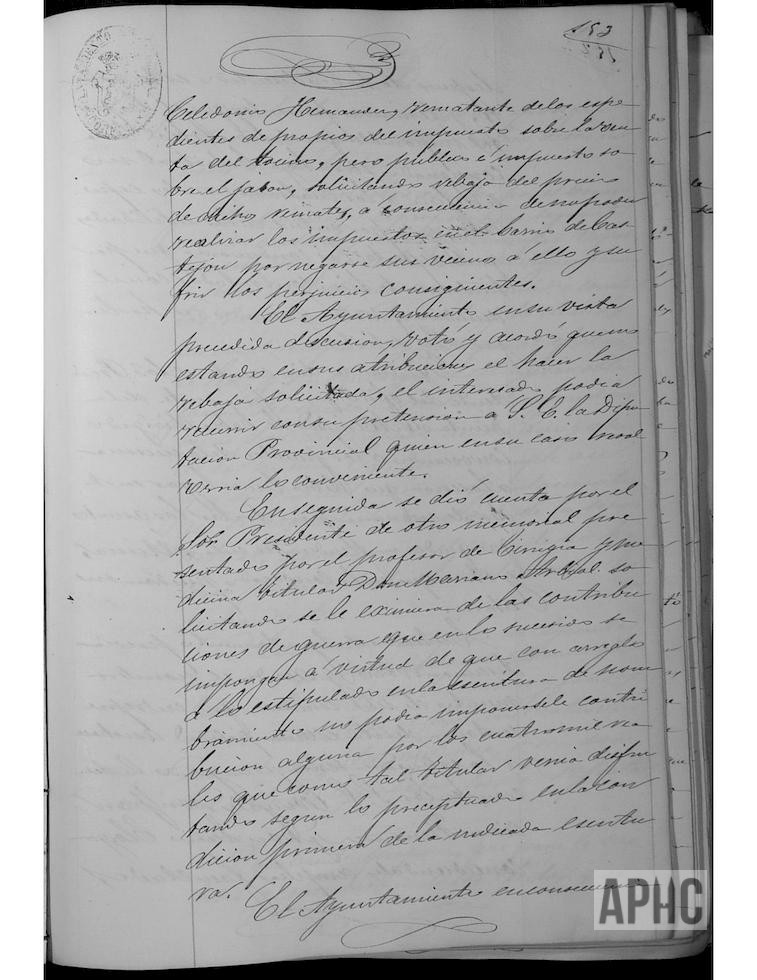 153
Celedonio Hernandez, rematante de los espe-
dientes de propios del impuesto sobre la ven-
ta del tocino, peso publico é impuesto so-
bre el jabon, solicitando rebaja del precio
de dichos remates, a consecuencia de no poder
realizar los impuestos en el barrio de Cas-
tejon por negarse sus vecinos a ello y su
frir los perjuicios consiguientes.
El Ayuntamiento en su vista
precedida discusion, votó y acordó que no
estando en sus atribuciones el hacer la
rebaja solicitada, el interesado podia
recurrir con su pretension a S. E. la Dipu
tacion Provincial quien en su caso resol
veria lo conveniente.
Enseguida se dió cuenta por el
Sor. Presidente de otro memorial pre
sentado por el profesor de Cirugia y me
dicina titular Don Mariano so
licitando se le eximiera de las contribu
ciones de guerra que en lo sucesivo se
impongan á virtud de que con arreglo
a lo estipulado en la escritura de nom
bramiento no podia imponersele contri
bucion alguna por los cuatro mil rea
les que como tal titular venia disfru
tando segun lo preceptuado en la con
dicion primera de la indicada escritu
ra.
El Ayuntamiento en consecuencia
APHC